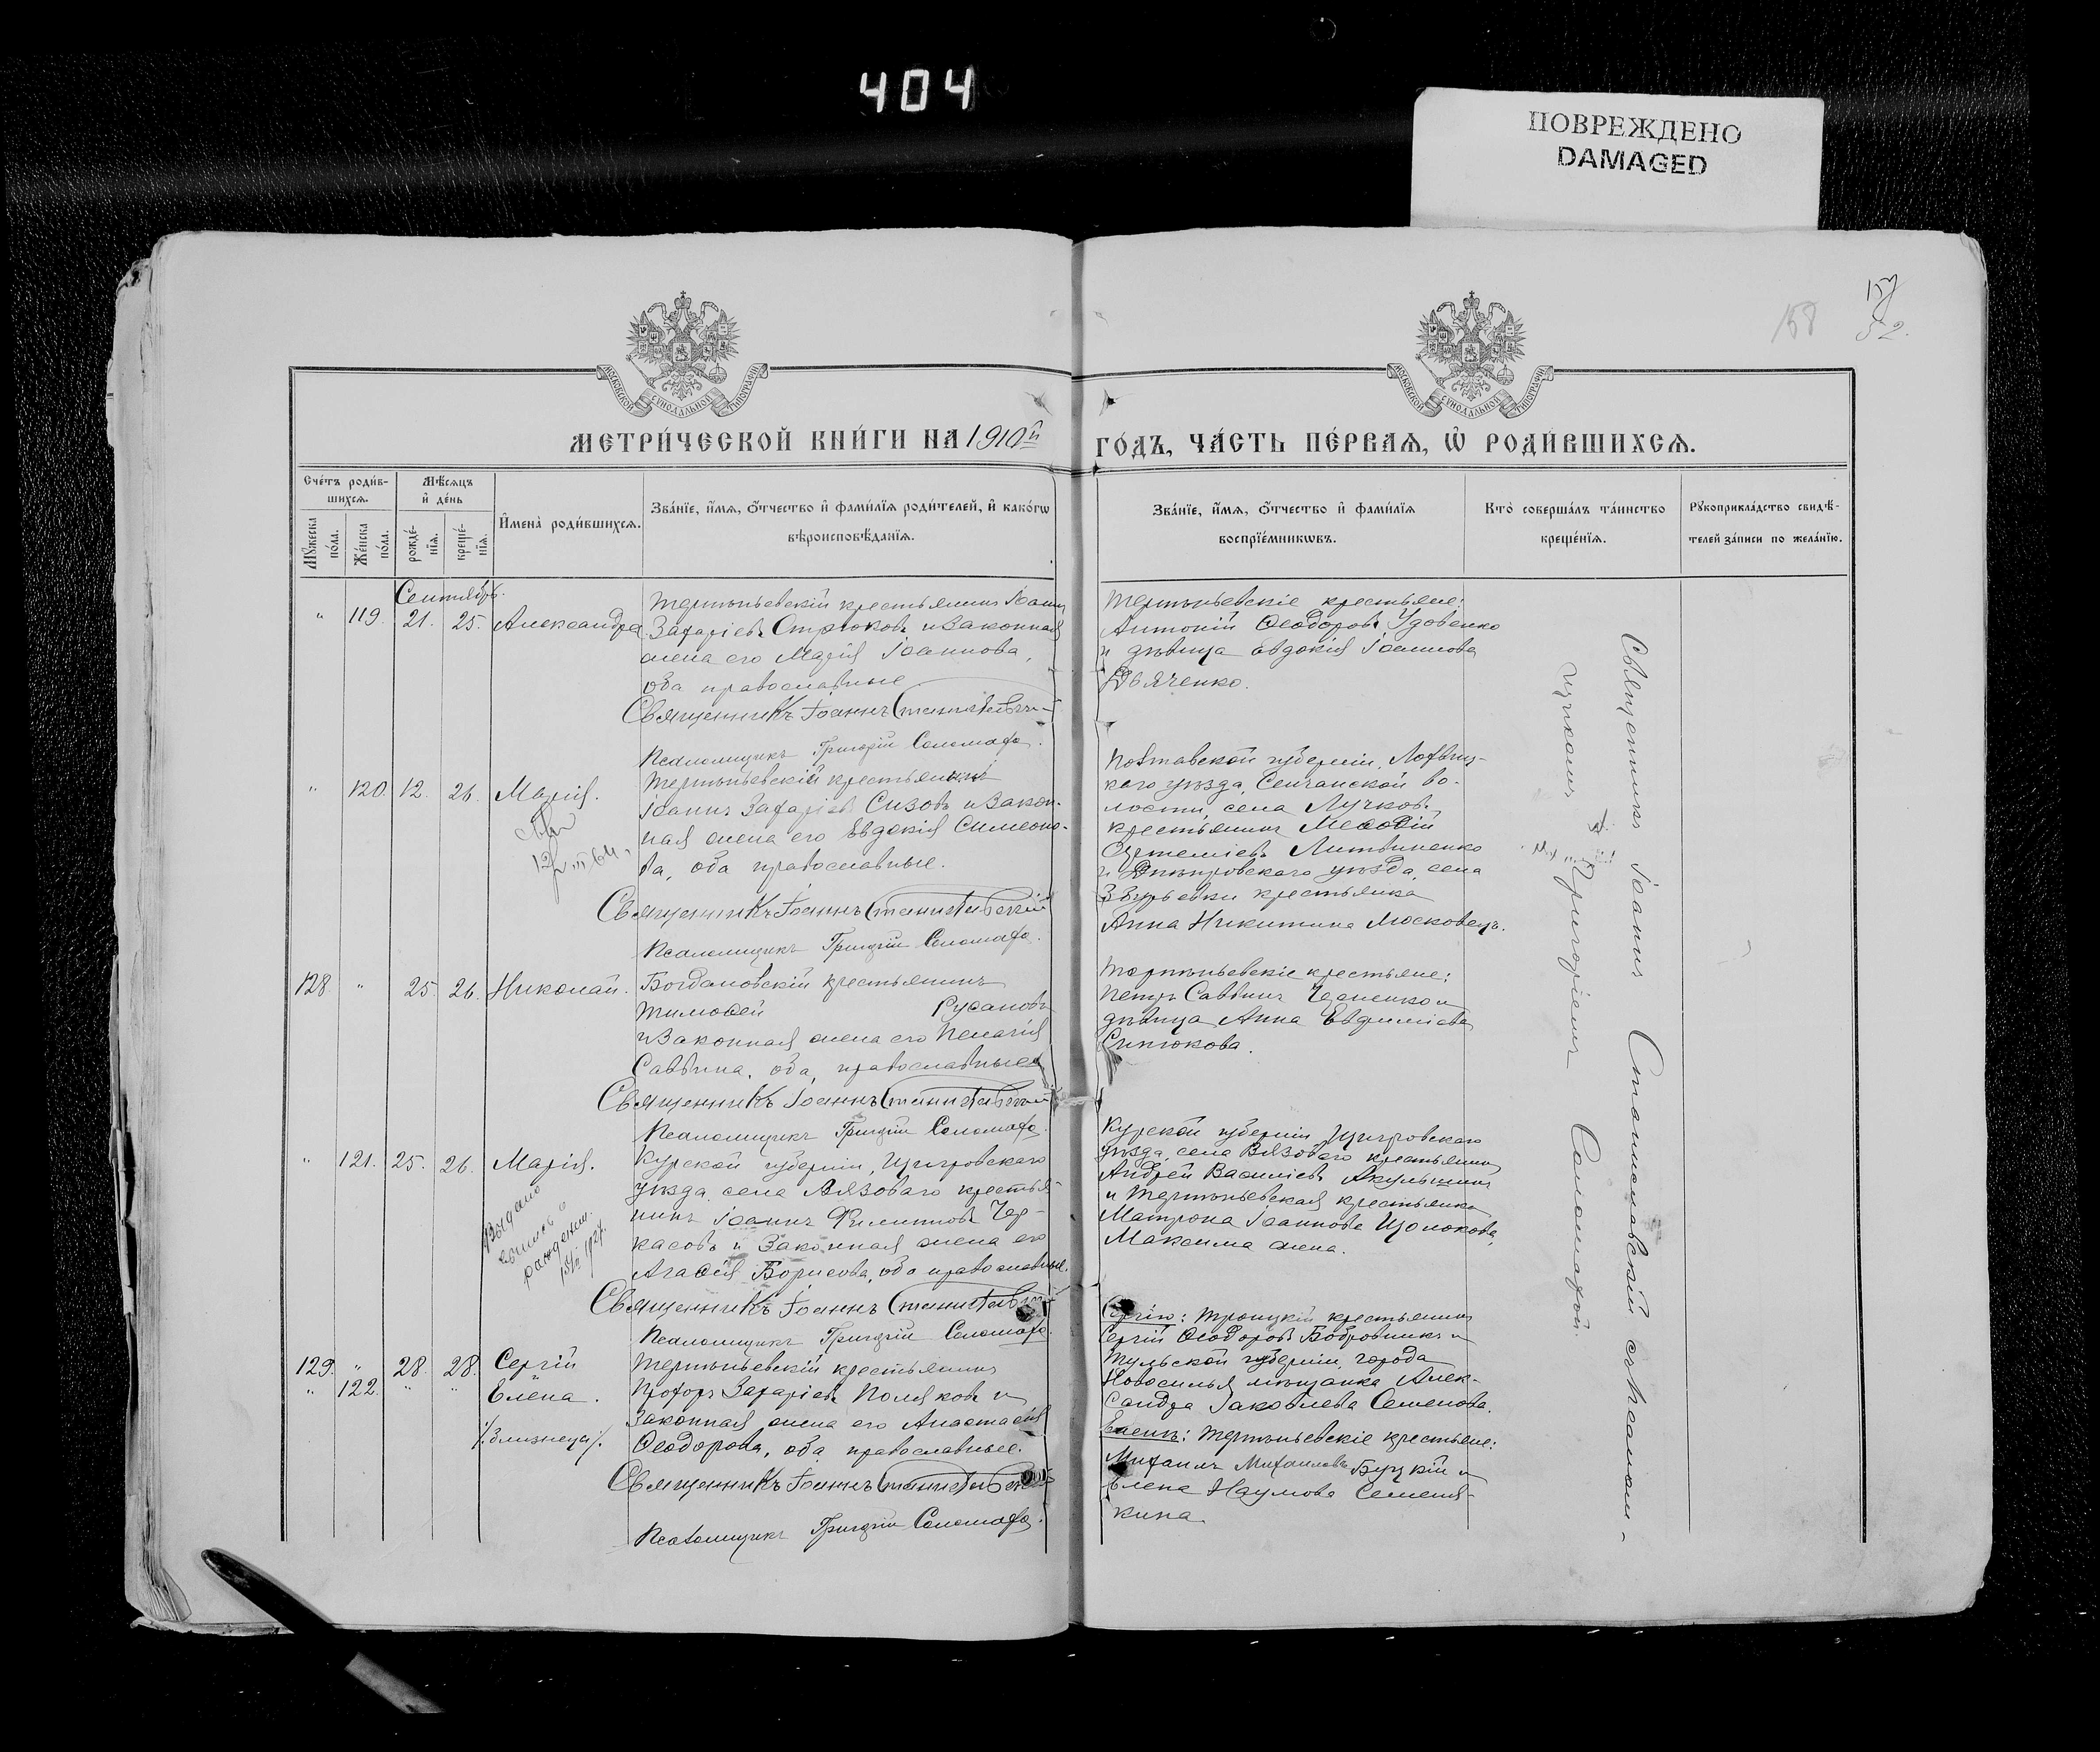 404
ПОВРЕЖДЕНО
DAMAGED
158
157
52.
МОСКОВСКОЙ СѴНОДАЛЬНОЙ ТИПОГРАФІИ
МОСКОВСКОЙ СѴНОДАЛЬНОЙ ТИПОГРАФІИ
МЕТРИ́ЧЕСКОЙ КНИ́ГИ НА 1910й
ГО́ДЪ, ЧА́СТЬ ПЕ́РВАѦ, Ѡ҆ РОДИ́ВШИХСѦ.
Сче́тъ роди́в-
шихсѧ.
Мꙋ́жеска по́ла.
Же́нска по́ла.
Мѣ́сѧцъ
и҆ де́нь
рожде́-
нїѧ.
креще́-
нїѧ.
И҆мена̀ роди́вшихсѧ.
Зва́нїе, и҆́мѧ, ѻ҆́тчество и҆ фами́лїѧ роди́телей, и҆ како́гѡ
вѣроисповѣ́данїѧ.
Зва́нїе, и҆́мѧ, ѻ҆́тчество и҆ фами́лїѧ
воспрїе́мникѡвъ.
Кто̀ соверша́лъ та́инство
креще́нїѧ.
Рꙋкоприкла́дство свидѣ́-
телей за́писи по жела́нїю.
Сентябрь.
" 119. 21. 25. Александра
Терпѣньевскій крестьянинъ Іоаннъ
Захаріевъ Стрюковъ и законная
жена его Марія Іоаннова,
оба православные
Священникъ Іоаннъ Станиславскій
Псаломщикъ Григорій Соломаха.
Терпѣньевскіе крестьяне:
Антоній Ѳеодоровъ Удовенко
и дѣвица Евдокія Іоаннова
Дьяченко.
" 120. 12. 26. Марія.
12 VIII 64
Терпѣньевскій крестьянинъ
Іоаннъ Захаріевъ Сизовъ и закон-
ная жена его Евдокія Симеоно-
ва, оба православные.
Священникъ Іоаннъ Станиславскій
Псаломщикъ Григорій Соломаха.
Полтавской губерніи, Лохвиц-
каго уѣзда, Сенчанской во-
лости, села Лучковъ
крестьянинъ Меѳодій
Артеміевъ Литвиненко
и Днѣпровскаго уѣзда, села
Збурьевки крестьянка
Анна Никитина Московецъ.
128 " 25. 26. Николай.
Богдановскій крестьянинъ
Тимоѳей Русановъ
и законная жена его Пелагія
Саввина, оба православные
Священникъ Іоаннъ Станиславскій
Псаломщикъ Григорій Соломаха.
Терпѣньевскіе крестьяне:
Петръ Саввинъ и
дѣвица Анна Евфиміева
" 121. 25. 26. Марія.
Выдано
о
рождении.
1927.
Курской губерніи, Щигровскаго
уѣзда, села Вязоваго крестья-
нинъ Іоаннъ Филипповъ Чер-
касовъ и законная жена его
Агаѳія Борисова, оба православные.
Священникъ Іоаннъ Станиславскій
Псаломщикъ Григорій Соломаха.
Курской губерніи Щигровскаго
уѣзда, села Вязоваго крестьянинъ
Андрей Василіевъ Акульшинъ
и Терпѣньевская крестьянка
Матрона Іоаннова
Максима жена.
129. " 28. 28. Сергій
" 122. " " Елена.
/близнецы/.
Терпѣньевскій крестьянинъ
Прохоръ Захаріевъ Поляковъ и
законная жена его Анастасія
Ѳеодорова, оба православные.
Священникъ Іоаннъ Станиславскій
Псаломщикъ Григорій Соломаха.
Сергію: Троицкій крестьянинъ
Сергій Ѳеодоровъ Бобровникъ и
Тульской губерніи, города
Новосилья мѣщанка Алек-
сандра Іаковлева Семенова.
Еленѣ: Терпѣньевскіе крестьяне:
Михаилъ Михаиловъ Буцкій и
Елена Наумова Семеня-
кина.
Священникъ Іоаннъ Станиславскій съ псалом-
щикомъ Григоріемъ Соломахой.